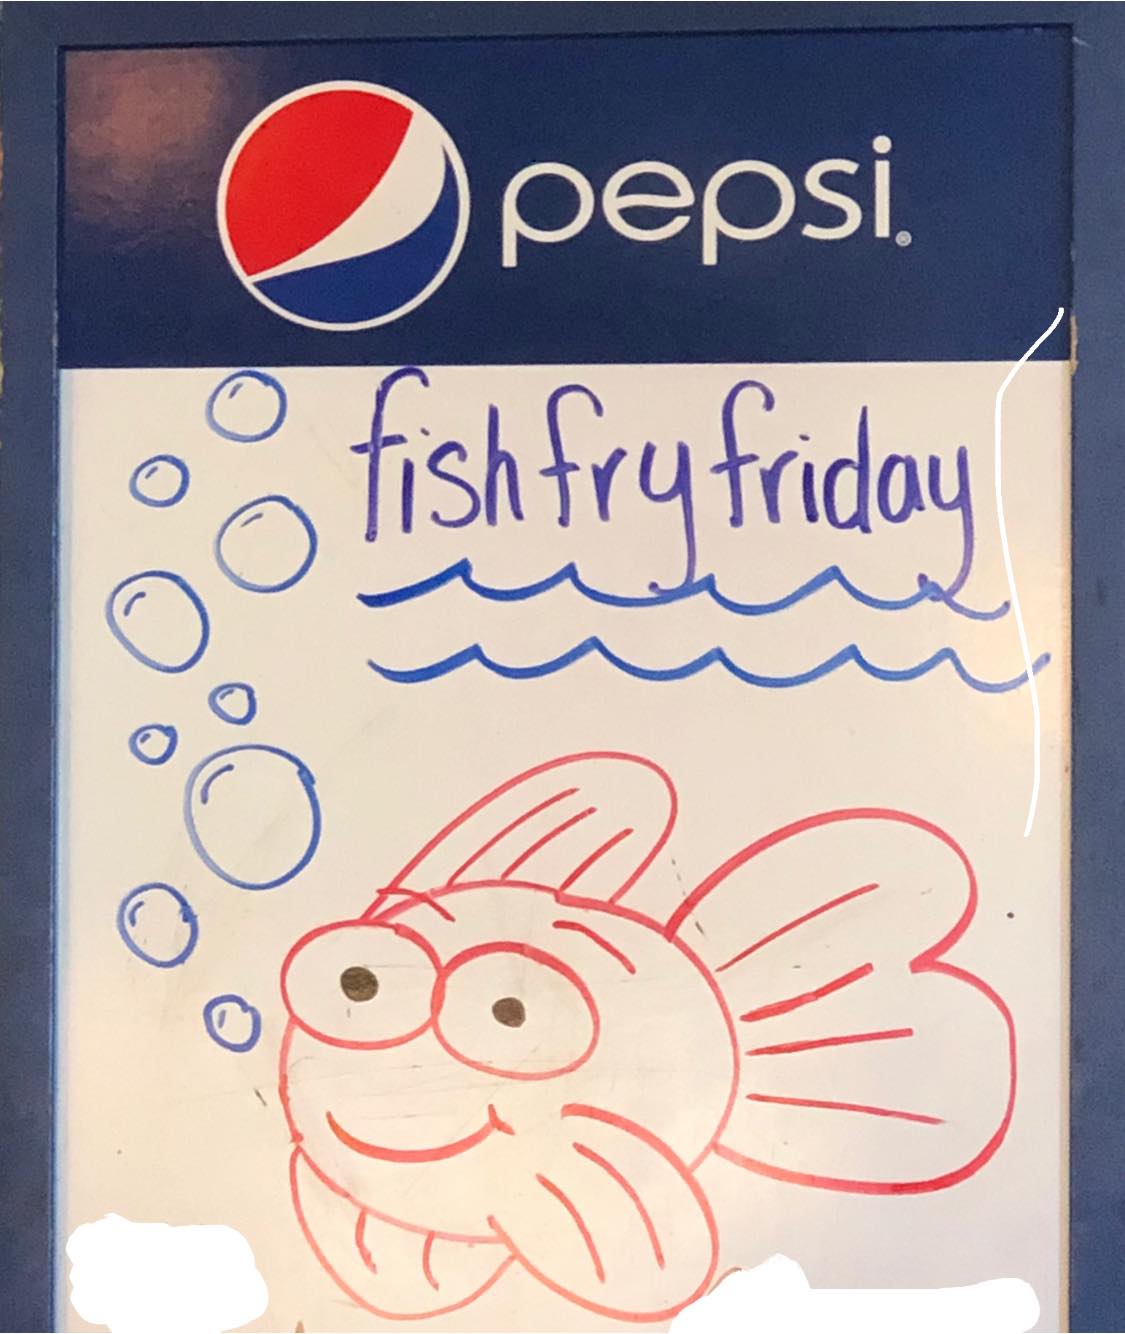 pepsi®
fish fry friday